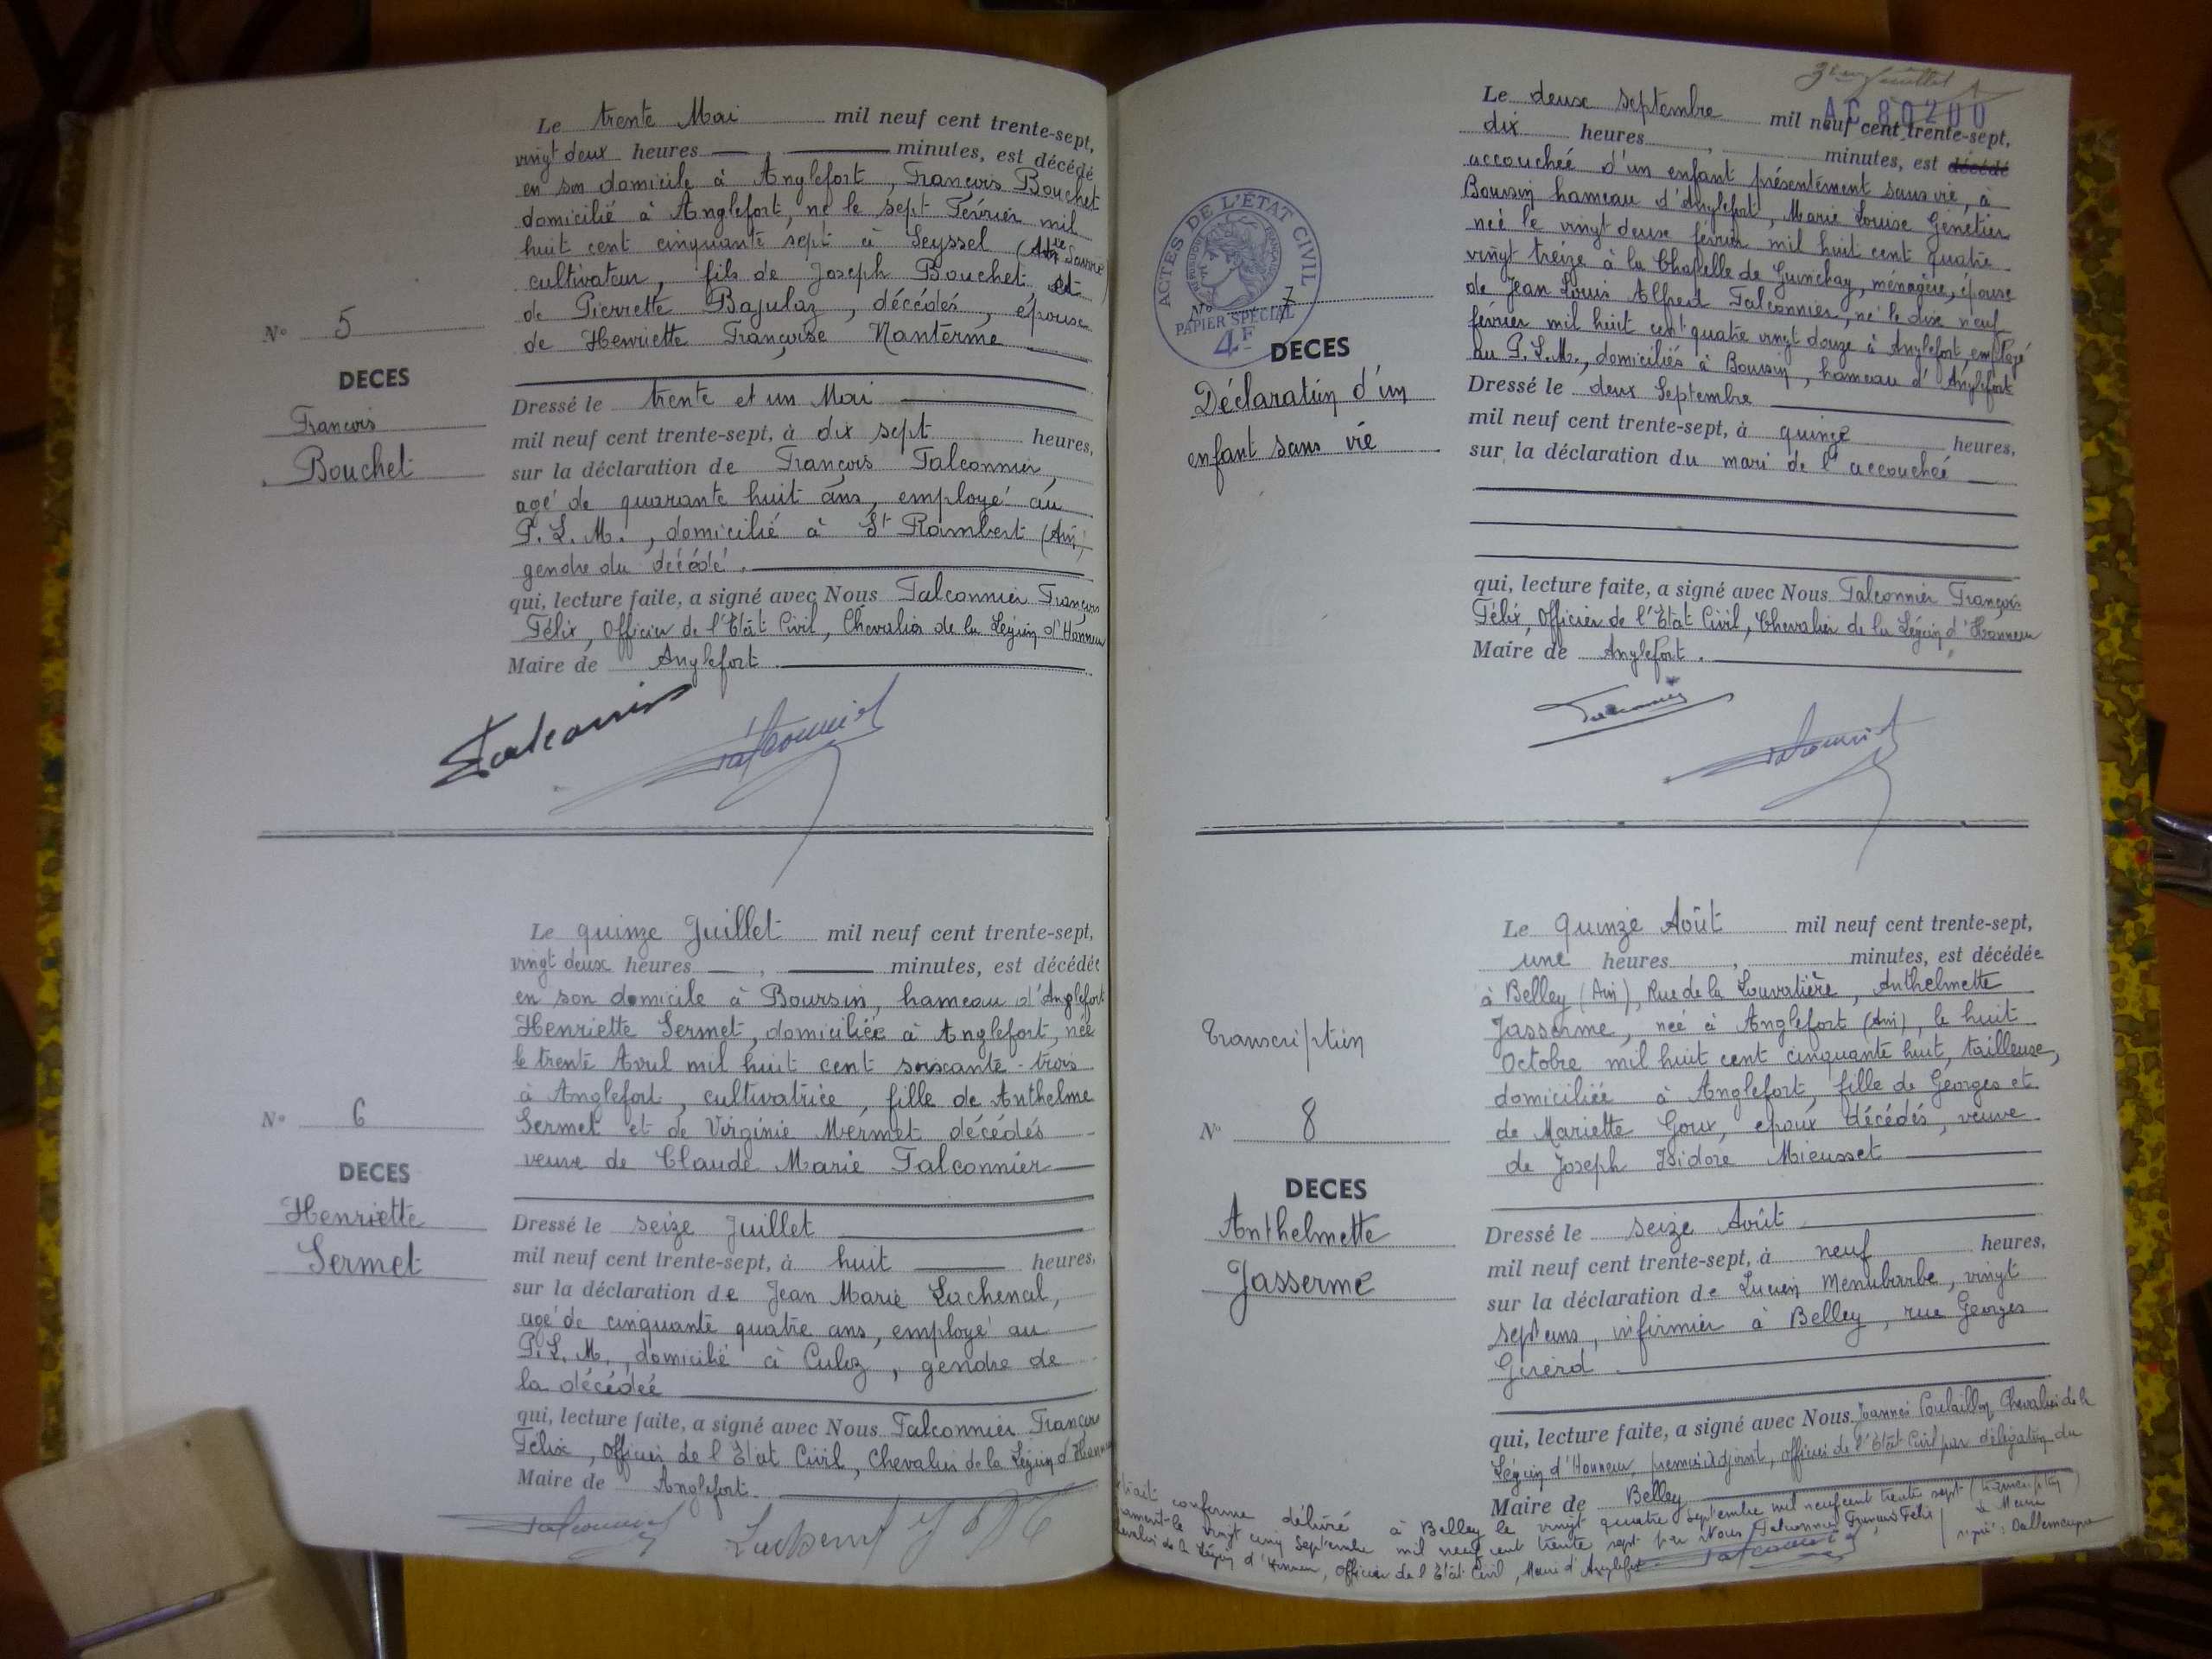 Le trente Mai mil neuf cent trente-sept,
vingt deux heures , minutes, est décédé
en son domicile à Anglefort, François Bouchet
domicilié à Anglefort, né le sept Février mil
huit cent cinquante sept à Seyssel (Hte Savoie)
cultivateur, fils de Joseph Bouchet et
de Pierrette Bajulaz, décédés, épouse
de Henriette Françoise Nanterme
N° 5
DECES
François
Bouchet
Dressé le trente et un Mai
mil neuf cent trente-sept, à dix sept heures,
sur la déclaration de François Falconnier,
agé de quarante huit ans, employé au
P.L.M., domicilié à St Rambert (Ain)
gendre du décédé.
qui, lecture faite, a signé avec Nous Falconnier François
Félix, Officier de l'Etat Civil, Chevalier de la Légion d'Honneur
Maire de Anglefort.
Le quinze Juillet mil neuf cent trente-sept,
vingt deux heures , minutes, est décédée
en son domicile à Boursin, hameau d'Anglefort
Henriette Sermet, domiciliée à Anglefort, née
le trente Avril mil huit cent soixante-trois
à Anglefort, cultivatrice, fille de Anthelme
Sermet et de Virginie Mermet décédés
veuve de Claude Marie Falconnier
N° 6
DECES
Henriette
Sermet
Dressé le seize Juillet
mil neuf cent trente-sept, à huit heures,
sur la déclaration de Jean Marie Lachenal,
agé de cinquante quatre ans, employé au
P.L.M., domicilié à Culoz, gendre de
la décédée
qui, lecture faite, a signé avec Nous Falconnier François
Félix, Officier de l'Etat Civil, Chevalier de la Légion d'Honneur
Maire de Anglefort.
feuillet
AC 80200
Le deux Septembre mil neuf cent trente-sept,
dix heures , minutes, est décédé
accouchée d'un enfant présentement sans vie, à
Boursin hameau d'Anglefort, Marie Louise Genetier
née le vingt deux février mil huit cent quatre
vingt treize à la Chapelle de Guinchay, ménagère, épouse
de Jean Louis Alfred Falconnier, né le dix neuf
février mil huit cent quatre vingt douze à Anglefort, employé
au P.L.M., domiciliés à Boursin, hameau d'Anglefort
ACTES DE L'ÉTAT CIVIL
RÉPUBLIQUE FRANÇAISE
PAPIER SPECIAL
4F
N° 7
DECES
Déclaration d'un
enfant sans vie
Dressé le deux Septembre
mil neuf cent trente-sept, à quinze heures,
sur la déclaration du mari de l'accouchée
qui, lecture faite, a signé avec Nous Falconnier François
Félix, Officier de l'Etat Civil, Chevalier de la Légion d'Honneur
Maire de Anglefort.
Le Quinze Août mil neuf cent trente-sept,
une heures , minutes, est décédée
à Belley (Ain), Rue de la Louvatière, Anthelmette
Jasserme, née à Anglefort (Ain), le huit
Octobre mil huit cent cinquante huit, tailleuse,
domiciliée à Anglefort, fille de Georges et
de Mariette Goux, époux décédés, veuve
de Joseph Isidore Mieusset
Transcription
N° 8
DECES
Anthelmette
Jasserme
Dressé le seize Août
mil neuf cent trente-sept, à neuf heures,
sur la déclaration de Lucien Menubarbe, vingt
sept ans, infirmier à Belley, rue Georges
Girerd
qui, lecture faite, a signé avec Nous Joannès Chevalier de la
Légion d'Honneur, premier Adjoint, officier de l'Etat Civil par délégation du
Maire de Belley
conforme délivré à Belley le vingt quatre septembre mil neuf cent trente sept (transcription)
le vingt cinq Septembre mil neuf cent trente sept par Nous Falconnier François Félix
Chevalier de la Légion d'Honneur, Officier de l'Etat Civil, Maire d'Anglefort
le Maire
signé: Dallemagne